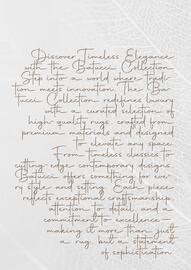 Discover Timeless Elegance
with the Batucci Collection
Step into a world where tradi-
tion meets innovation. The Ba-
tucci Collection redefines luxury
with a curated selection of
high-quality rugs, crafted from
premium materials and designed
to elevate any space.
From timeless classics to
cutting-edge contemporary designs,
Batucci offers something for eve-
ry style and setting. Each piece
reflects exceptional craftsmanship,
attention to detail, and a
commitment to excellence—
making it more than just
a rug, but a statement
of sophistication.